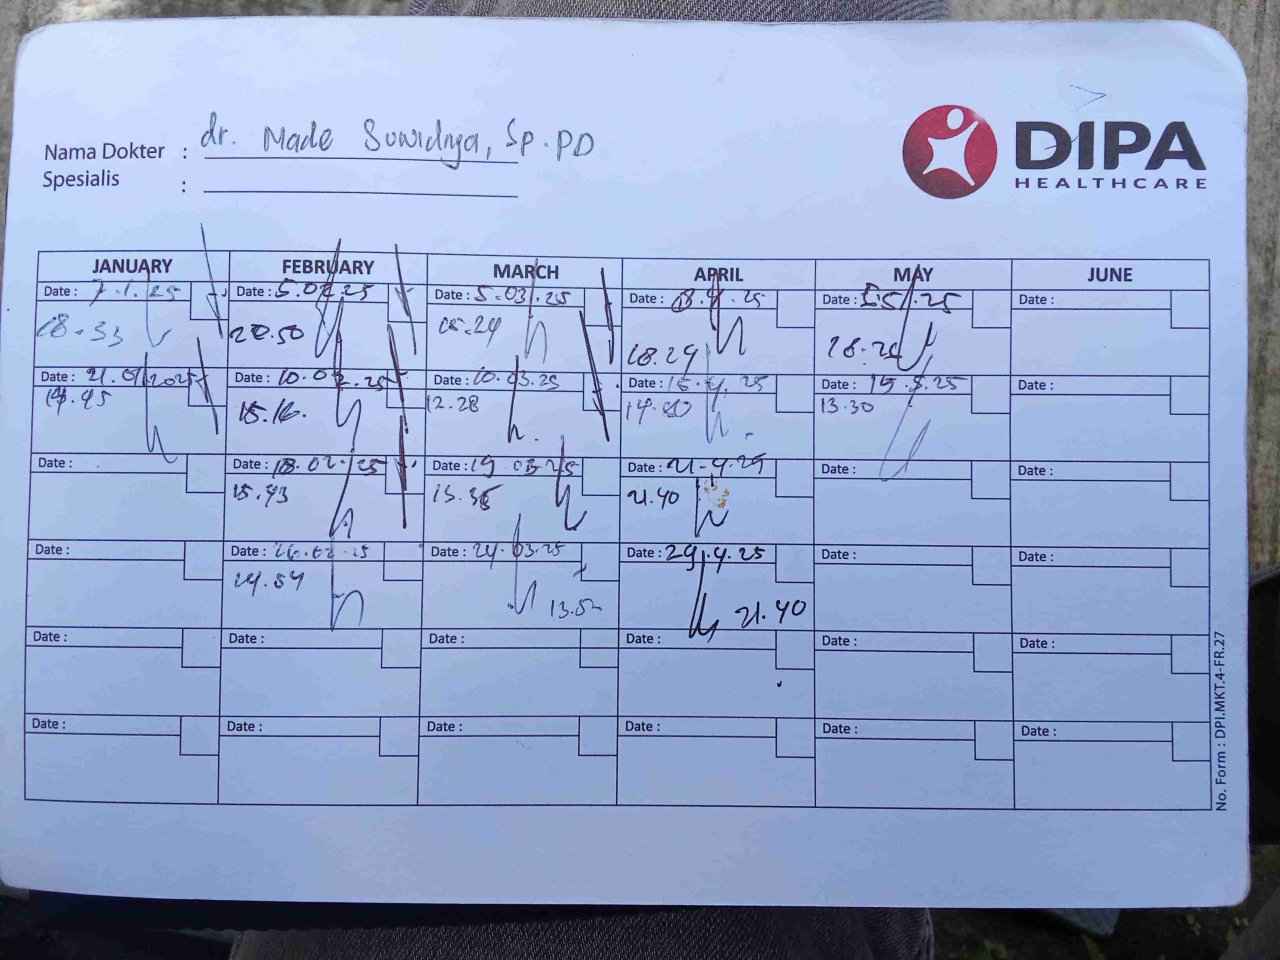 dr. Made Suwidnya, Sp.PD
Nama Dokter :
Spesialis :
DIPA
HEALTHCARE
JANUARY FEBRUARY MARCH APRIL MAY JUNE
Date : 7.1.25 Date : 5.02.25 Date : 5.03.25 Date : 08.4.25 Date : 5.5.25 Date :
18.33 20.50 15.24 18.29
Date : 21.01.2025 Date : 10.02.25 Date : 10.03.25 Date : 15.4.25 Date : 19.5.25 Date :
19.45 15.16. 12.28 13.30
Date : Date : 18.02.25 Date : 19.03.25 Date : 21.4.25 Date : Date :
15.43 15.36 21.40
Date : Date : 26.02.25 Date : 24.03.25 Date : 29.4.25 Date : Date :
14.54 21.40
Date : Date : Date : Date : Date : Date :
Date : Date : Date : Date : Date : Date :
No. Form : DPI.MKT.4-FR.27